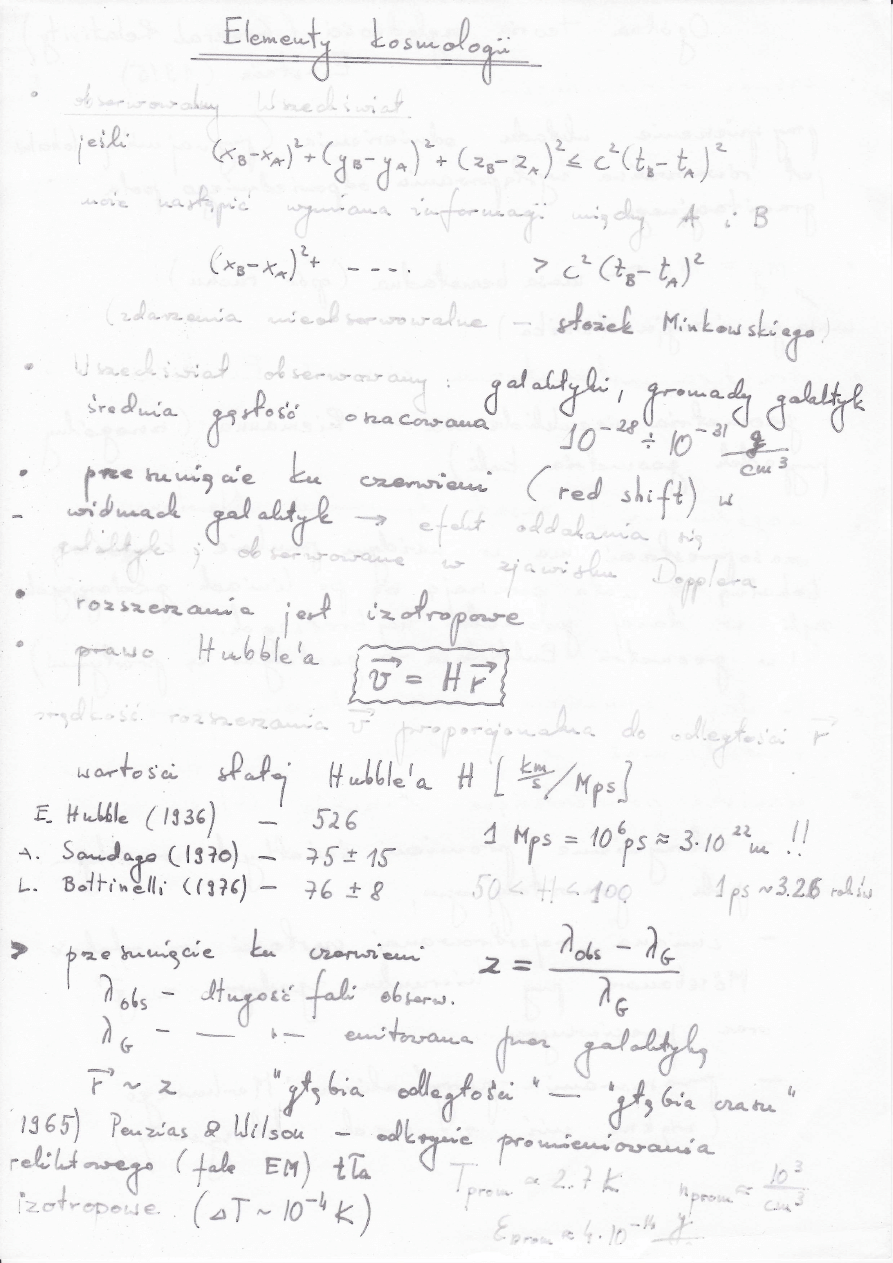 Elementy kosmologii
• obserwowalny Wszechświat
jeśli (x_B-x_A)²+(y_B-y_A)²+(z_B-z_A)² ≤ c²(t_B-t_A)²
może nastąpić wymiana informacji między A i B
(x_B-x_A)²+ ---. > c²(t_B-t_A)²
(zdarzenia nieobserwowalne – stożek Minkowskiego)
• Wszechświat obserwowany: galaktyki, gromady galaktyk
średnia gęstość oszacowana 10⁻²⁸ ÷ 10⁻³¹ g/cm³
• przesunięcie ku czerwieni (red shift) w
– widmach galaktyk → efekt oddalania się
galaktyk; obserwowane w zjawisku Dopplera
• rozszerzania jest izotropowe
• prawo Hubble'a v⃗ = H r⃗
prędkość rozszerzania v⃗ proporcjonalna do odległości r⃗
wartości stałej Hubble'a H [km/s/Mps]
E. Hubble (1936) – 526
1 Mps = 10⁶ ps ≈ 3·10²² m !!
A. Sandage (1970) – 75 ± 15
L. Bottinelli (1976) – 76 ± 8
50 < H < 100
1 ps ~ 3.26 roku św
> przesunięcie ku czerwieni z = (λ_obs - λ_G)/λ_G
λ_obs – długość fali obserw.
λ_G – — " — emitowana przez galaktykę
r⃗ ~ z "głębia odległości" — "głębia czasu"
1965) Penzias & Wilson – odkrycie promieniowania
reliktowego (fale EM) tła
T_prom ≈ 2.7 K n_prom ≈ 10³/cm³
izotropowe. (ΔT ~ 10⁻⁴ K)
ε_prom ≈ 4·10⁻¹⁴